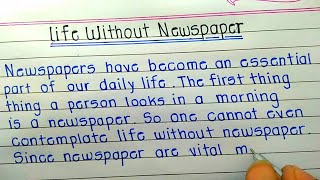 Life Without Newspaper
Newspapers have become an essential
part of our daily life. The first thing
thing a person looks in a morning
is a newspaper. So one cannot even
contemplate life without newspaper.
Since newspaper are vital m